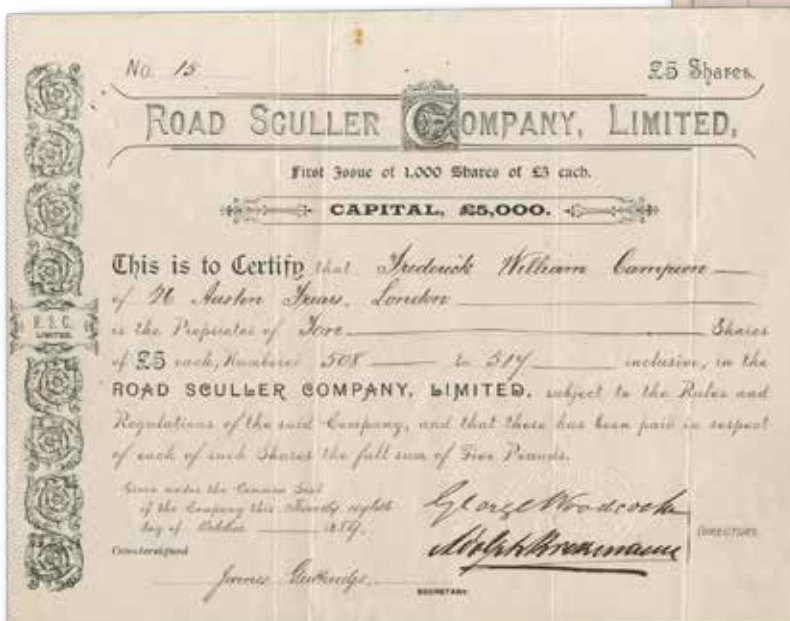 No. 15
£5 Shares.
ROAD SCULLER COMPANY, LIMITED,
First Issue of 1,000 Shares of £5 each.
CAPITAL, £5,000.
This is to Certify that Frederick William Campion
of 26 Austin Friars, London
is the Proprietor of Shares
of £5 each, Numbered 508 to 517 inclusive, in the
ROAD SCULLER COMPANY, LIMITED, subject to the Rules and
Regulations of the said Company, and that there has been paid in respect
of each of such Shares the full sum of Five Pounds.
Given under the Common Seal
of the Company this Twenty eighth
day of October 1889.
George Woodcock
Adolph
DIRECTORS
Countersigned
James
SECRETARY
R. S. C.
LIMITED